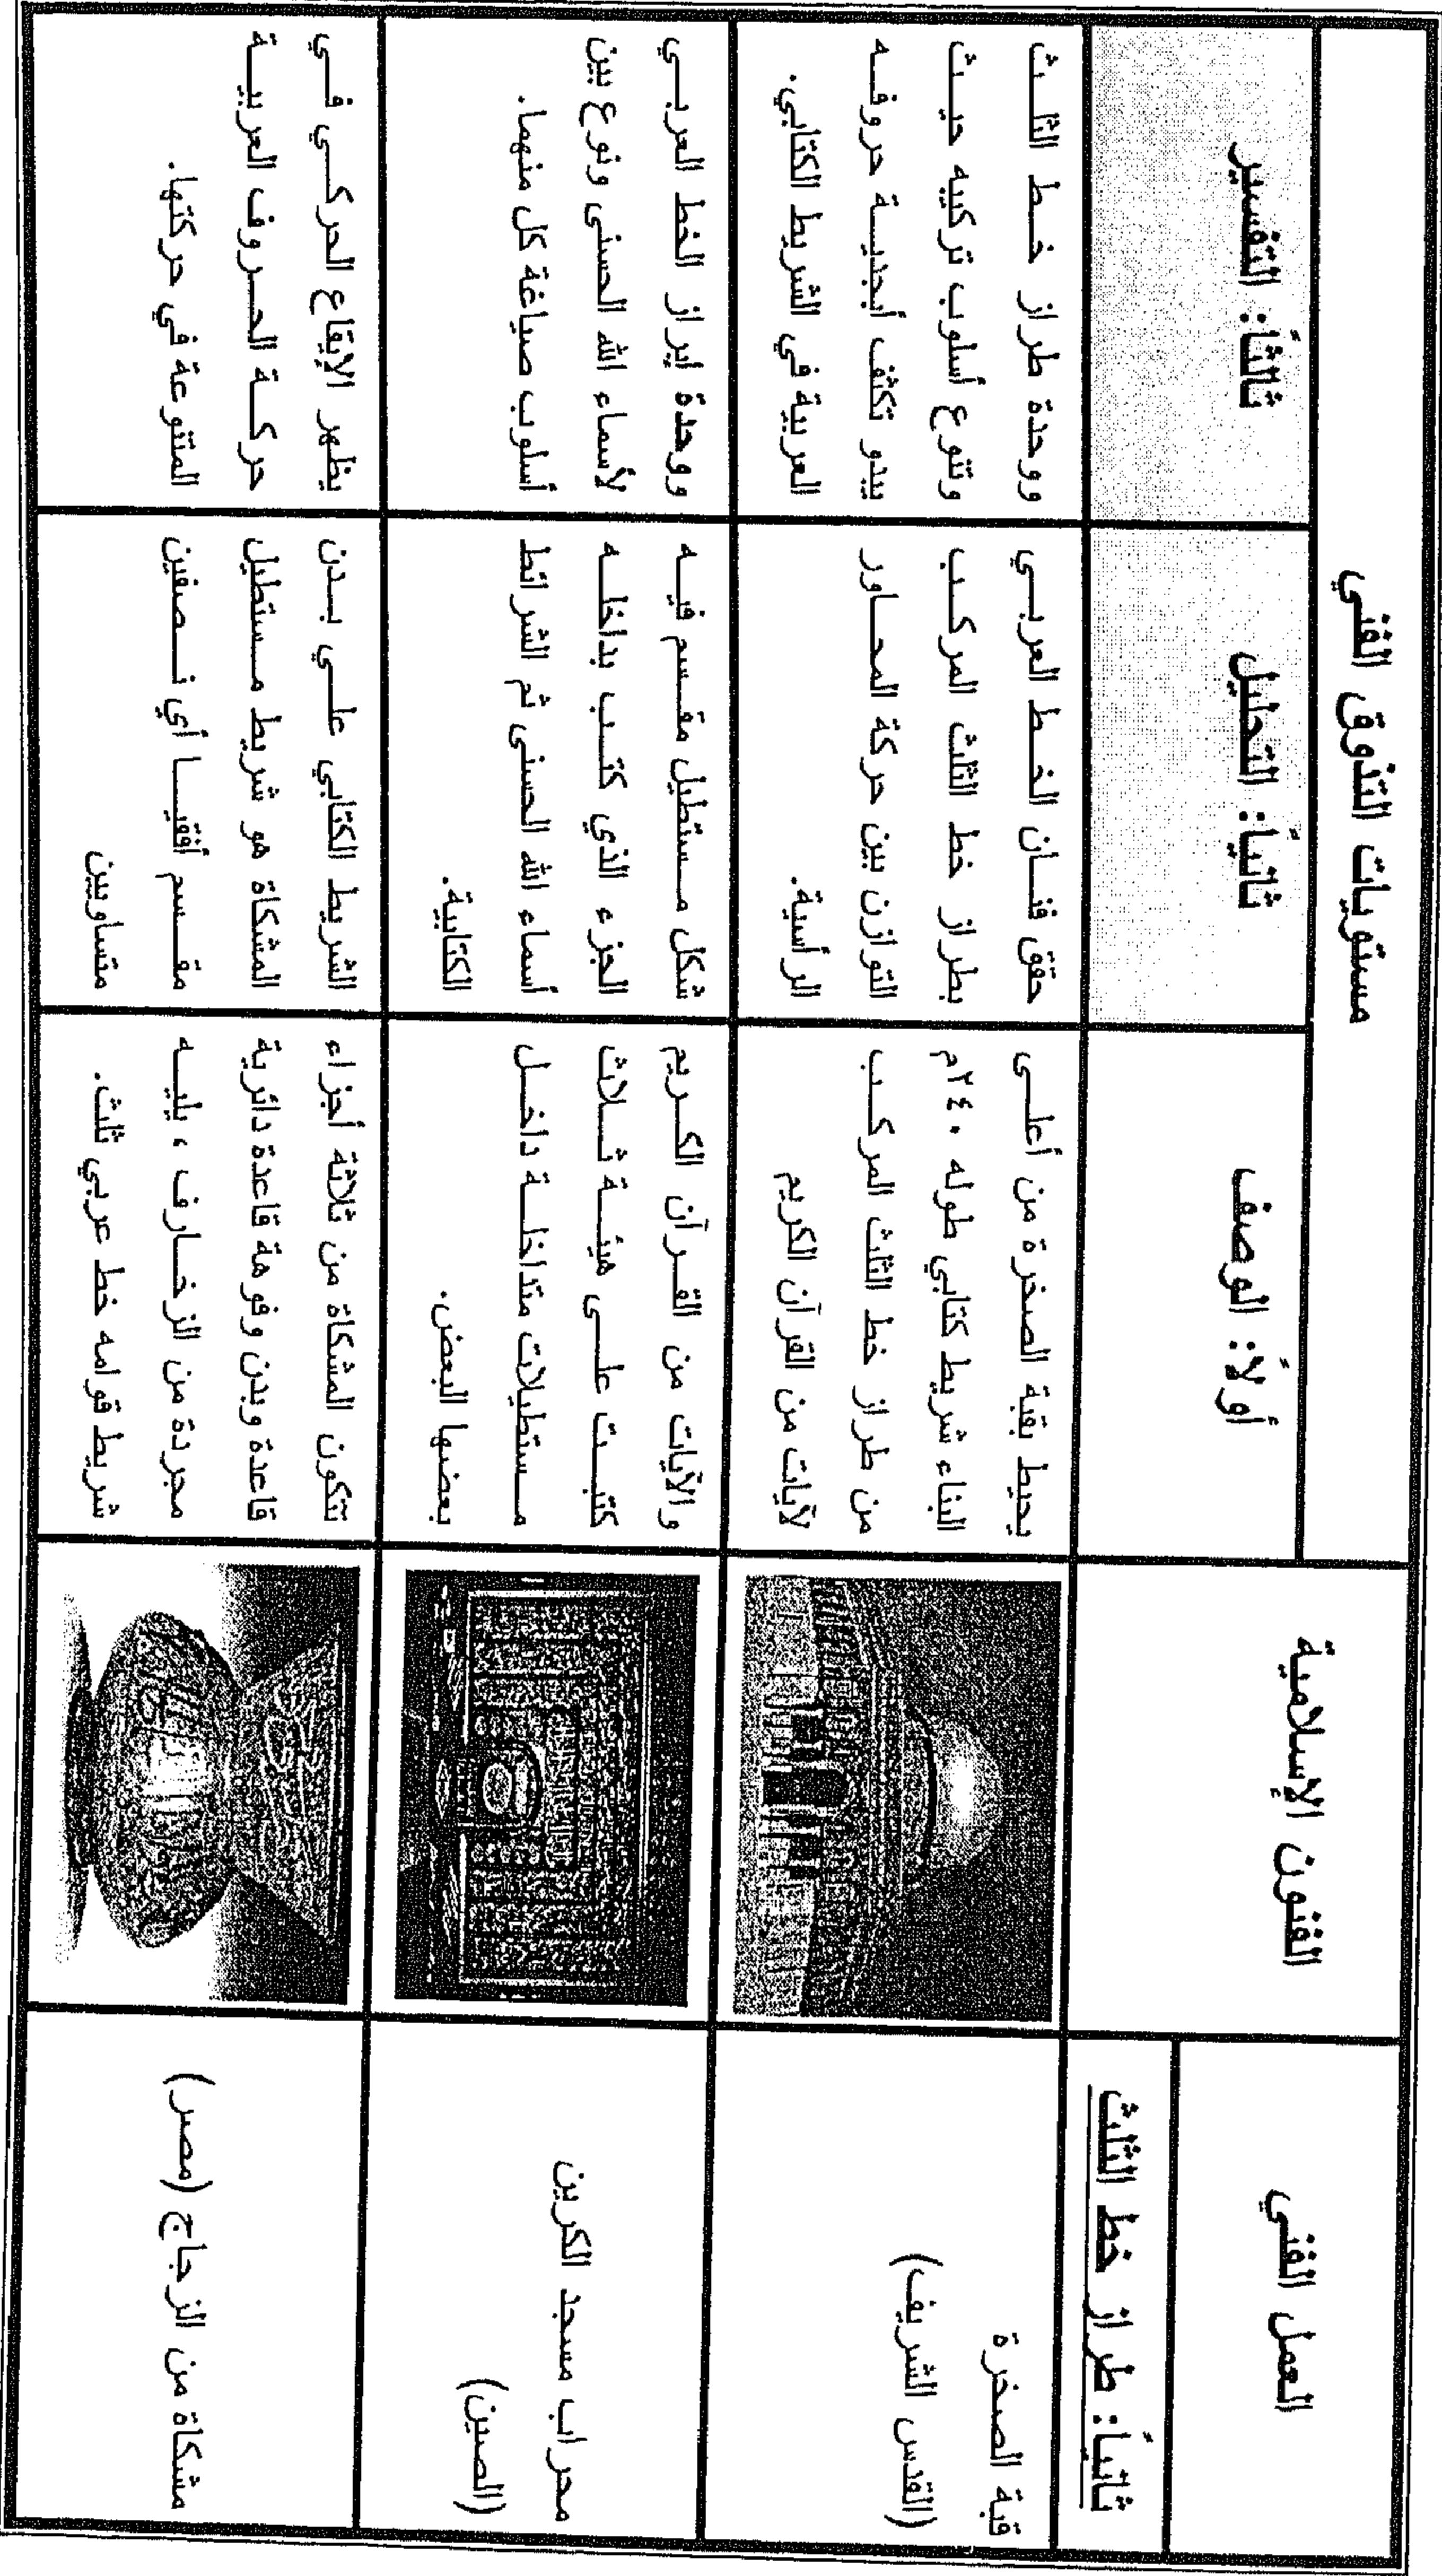 العمل الفني
الفنون الإسلامية
مستويات التذوق الفني
ثانياً: طراز خط الثلث
أولاً: الوصف
ثانياً: التحليل
ثالثاً: التفسير
قبة الصخرة
(القدس الشريف)
يحيط بقبة الصخرة من أعلى
البناء شريط كتابي طوله ٢٤٠م
من طراز خط الثلث المركب
لآيات من القرآن الكريم
حقق فنان الخط العربي
بطراز خط الثلث المركب
التوازن بين حركة المحاور
الرأسية.
ووحدة طراز خط الثلث
وتنوع أسلوب تركيبه حيث
يبدو تكثف أبجدية حروفه
العربية في الشريط الكتابي.
محراب مسجد الكرين
(الصين)
والآيات من القرآن الكريم
كتبت على هيئة ثلاث
مستطيلات متداخلة داخل
بعضها البعض.
شكل مستطيل مقسم فيه
الجزء الذي كتب بداخله
أسماء الله الحسنى ثم الشرائط
الكتابية.
ووحدة إبراز الخط العربي
لأسماء الله الحسنى ونوع بين
أسلوب صياغة كل منهما.
مشكاة من الزجاج (مصر)
تتكون المشكاة من ثلاثة أجزاء
قاعدة وبدن وفوهة قاعدة دائرية
مجردة من الزخارف، يليه
شريط قوامه خط عربي ثلث.
الشريط الكتابي على بدن
المشكاة هو شريط مستطيل
مقسم أفقيا أي نصفين
متساويين
يظهر الإيقاع الحركي في
حركة الحروف العربية
المتنوعة في حركتها.